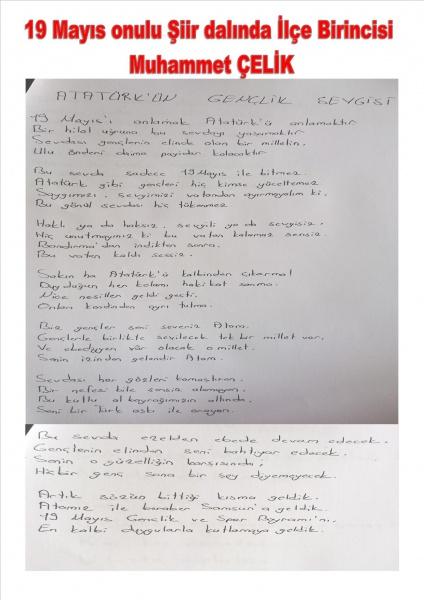 19 Mayıs onulu Şiir dalında İlçe Birincisi
Muhammet ÇELİK
ATATÜRK'ÜN GENÇLİK SEVGİSİ
19 Mayıs'ı anlamak Atatürk'ü anlamaktır
Bir hilal uğruna bu sevdayı yaşamaktır
Sevdası gençlerin elinde olan bir milletin.
Ulu önderi daima payidar kalacaktır
Bu sevda sadece 19 Mayıs ile bitmez
Atatürk gibi gençleri hiç kimse yüceltemez
Saygımızı, sevgimizi vatandan ayırmayalım ki.
Bu gönül sevdası hiç tükenmez
Haklı ya da haksız, sevgili ya da sevgisiz.
Hiç unutmayınız ki bu vatan kalamaz sensiz.
Bandırma'dan indikten sonra.
Bu vatan kaldı sessiz.
Sakın ha Atatürk'ü kalbinden çıkarma!
Duyduğun her kelamı hakikat sanma.
Nice nesiller geldi geçti.
Onları kendinden ayrı tutma.
Biz gençler seni severiz Atam.
Gençlerle birlikte sevilecek tek bir millet var,
Ve ebediyen var olacak o millet.
Senin izinden gelendir Atam.
Sevdası her gözleri kamaştıran.
Bir nefesi bile sensiz alamayan.
Bu kutlu al bayrağımızın altında.
Seni bir Türk aşkı ile arayan.
Bu sevda ezelden ebede devam edecek.
Gençlerin elinden seni bahtiyar edecek.
Senin o güzelliğin karşısında,
Hiçbir genç sana bir şey diyemeyecek.
Artık sözün bittiği kısma geldik.
Atamız ile beraber Samsun'a geldik.
19 Mayıs Gençlik ve Spor Bayramı'nı.
En kalbi duygularla kutlamaya geldik.